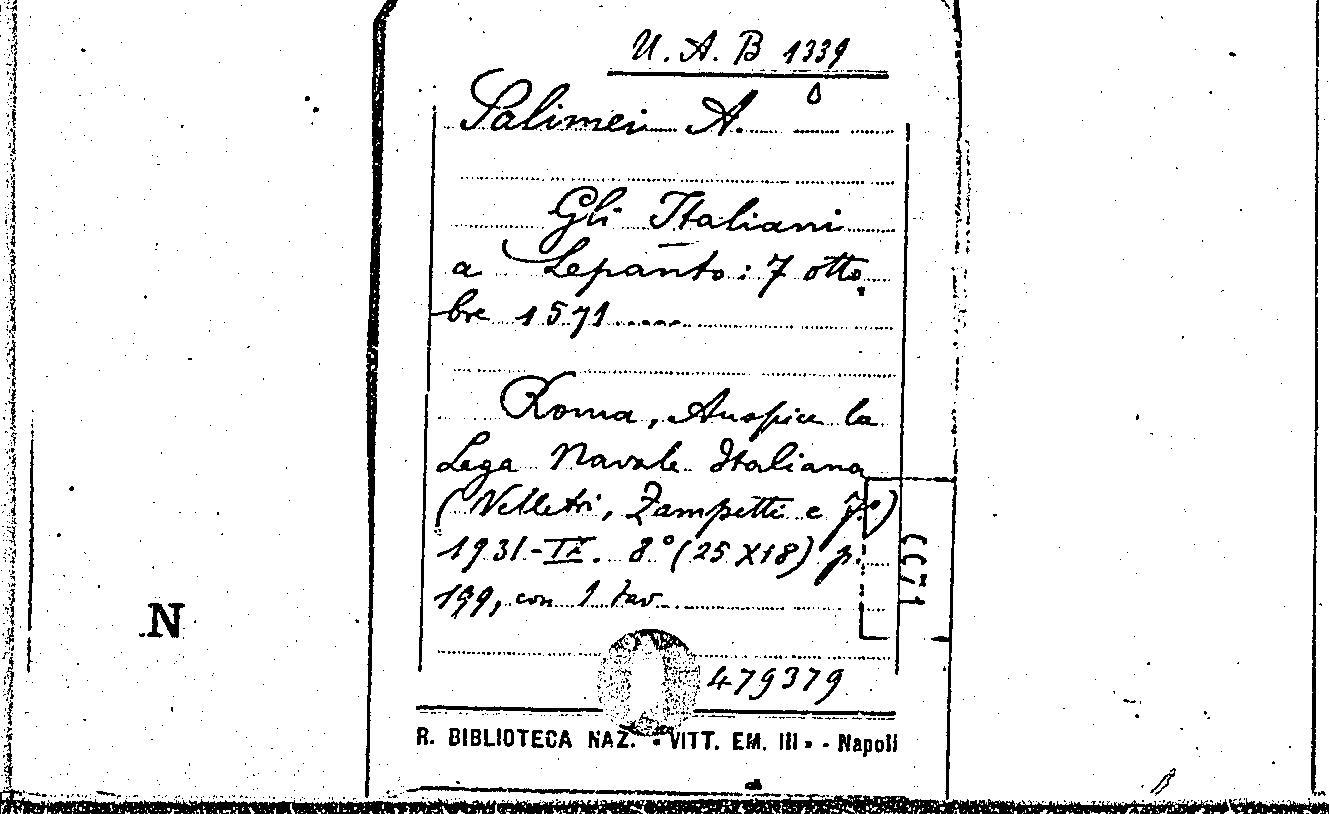 U. A. B 1339
Salimei A.
Gli Italiani
a Lepanto: 7 otto
bre 1571.....
Roma, Auspice la
Lega Navale Italiana
(Velletri, Zampetti e f.º)
1931-IX. 8° (25 X18) p.
199, con 1 tav.
N
479379
R. BIBLIOTECA NAZ. « VITT. EM. III » - Napoli